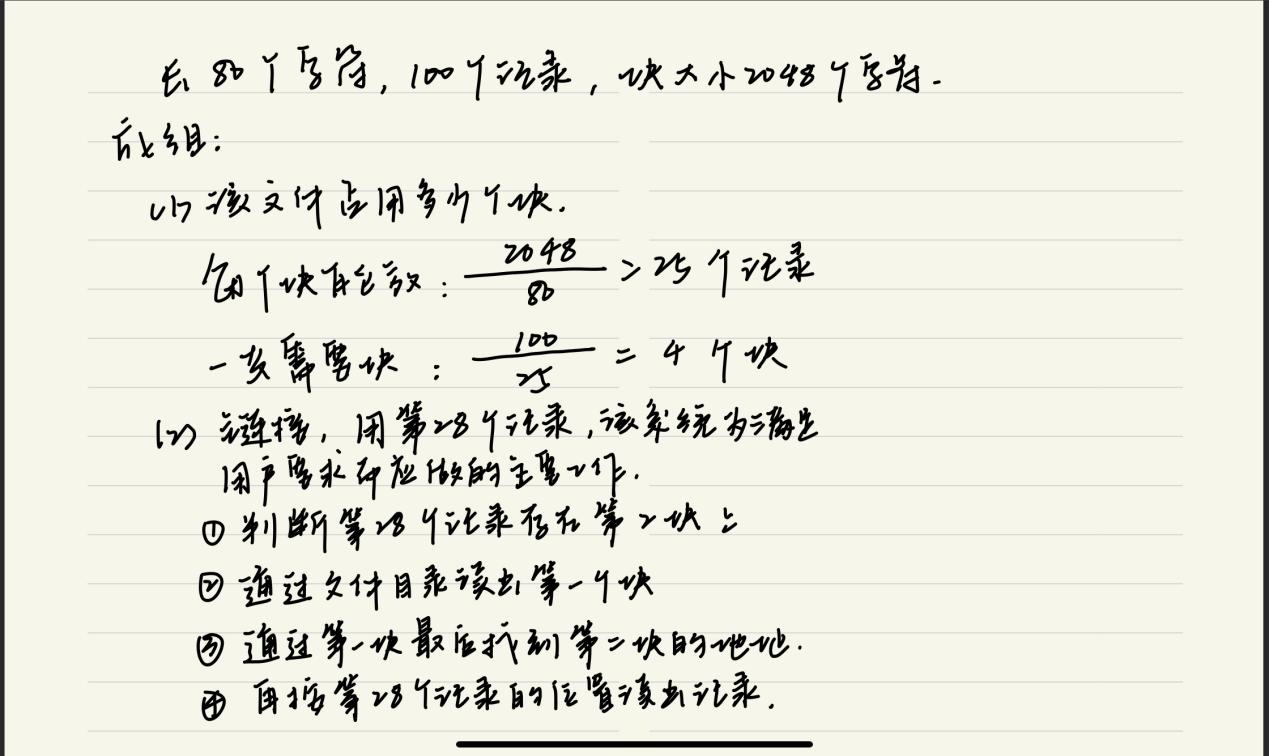 长80个字符，100个记录，块大小2048个字符.
成组：
(1) 该文件占用多少个块.
每个块存仓数：2048/80 > 25个记录
一共需要块：100/25 = 4个块
(2) 链接，用第28个记录，该系统为满足
用户要求所应做的主要工作.
① 判断第28个记录存在第2块上
② 通过文件目录读出第一个块
③ 通过第一块最后找到第二块的地址.
④ 再按第28个记录的位置读出记录.